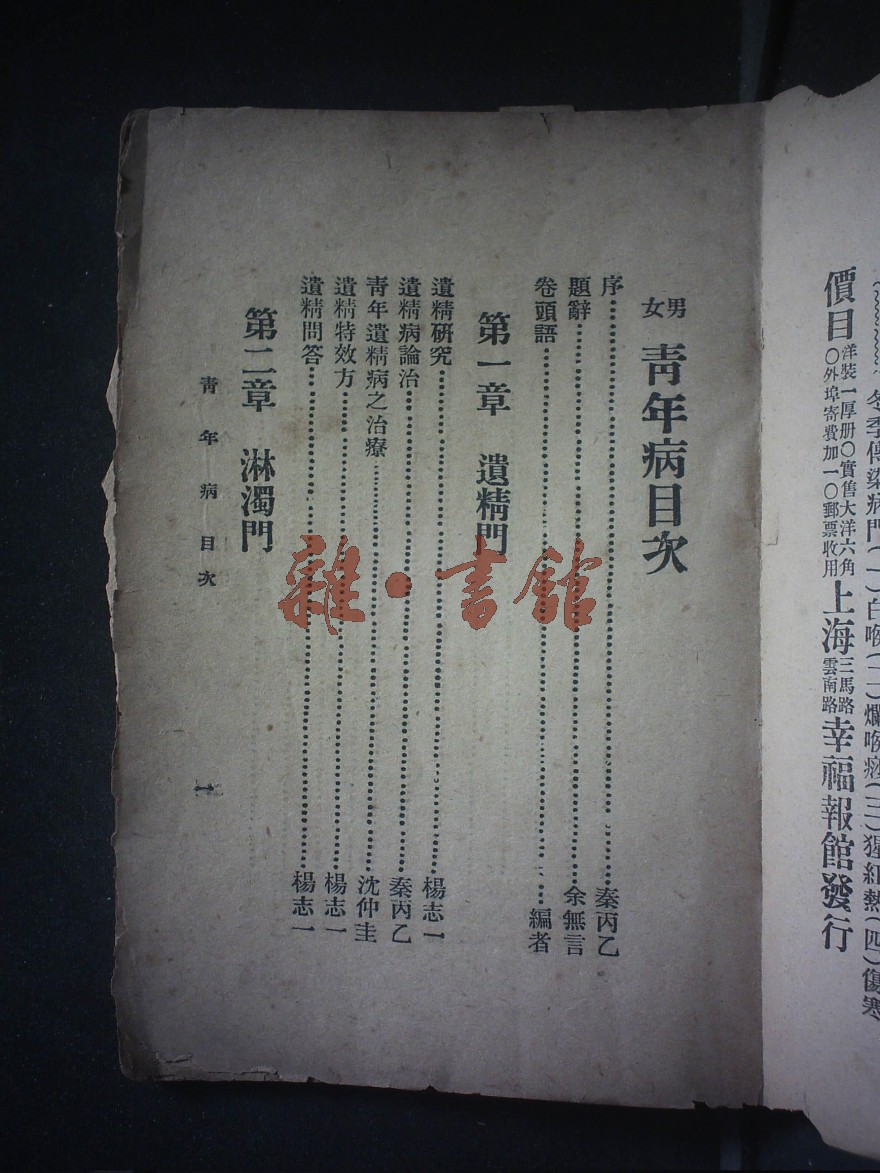 冬季傳染病門(一)白喉(二)爛喉痧(三)猩紅熱(四)傷寒
價目 洋裝一厚册〇實售大洋六角 〇外埠寄費加一〇郵票收用 上海 三馬路 雲南路 幸福報館發行
男女 靑年病目次
序……秦丙乙
題辭……余無言
卷頭語……編者
第一章 遺精門
遺精硏究……楊志一
遺精病論治……秦丙乙
靑年遺精病之治療……沈仲圭
遺精特效方……楊志一
遺精問答……楊志一
第二章 淋濁門
靑年病目次
一
雜·書館